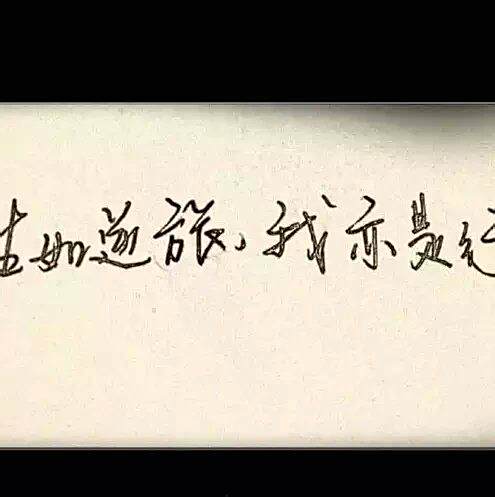 生如逆旅,我亦是行